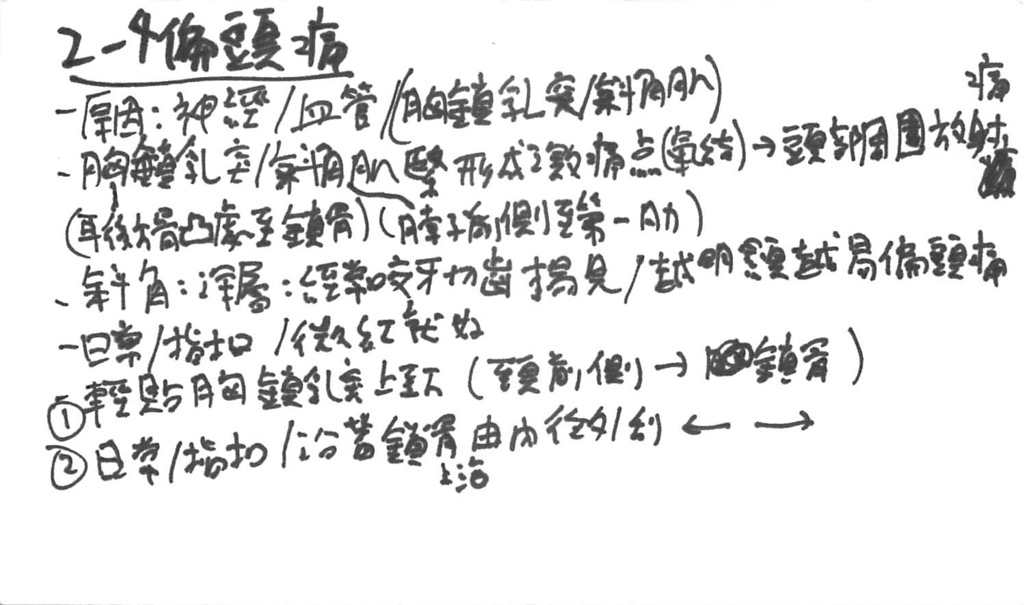 2-4偏頭痛
-原因：神經/血管/(胸鎖乳突/斜角肌)
、胸鎖乳突/斜角肌緊 形成激痛点(氣結)→頭部周圍放射痛
(耳後骨凸處至鎖骨)(脖子前側至第一肋)
、斜角：深層：經常咬牙切齒 易見/越明顯越易偏頭痛
-日常/指扣/微紅就好
①輕點胸鎖乳突上到下(頸前側→鎖骨)
②日常/指扣/沿著鎖骨由內往外刮 ← →
上沿